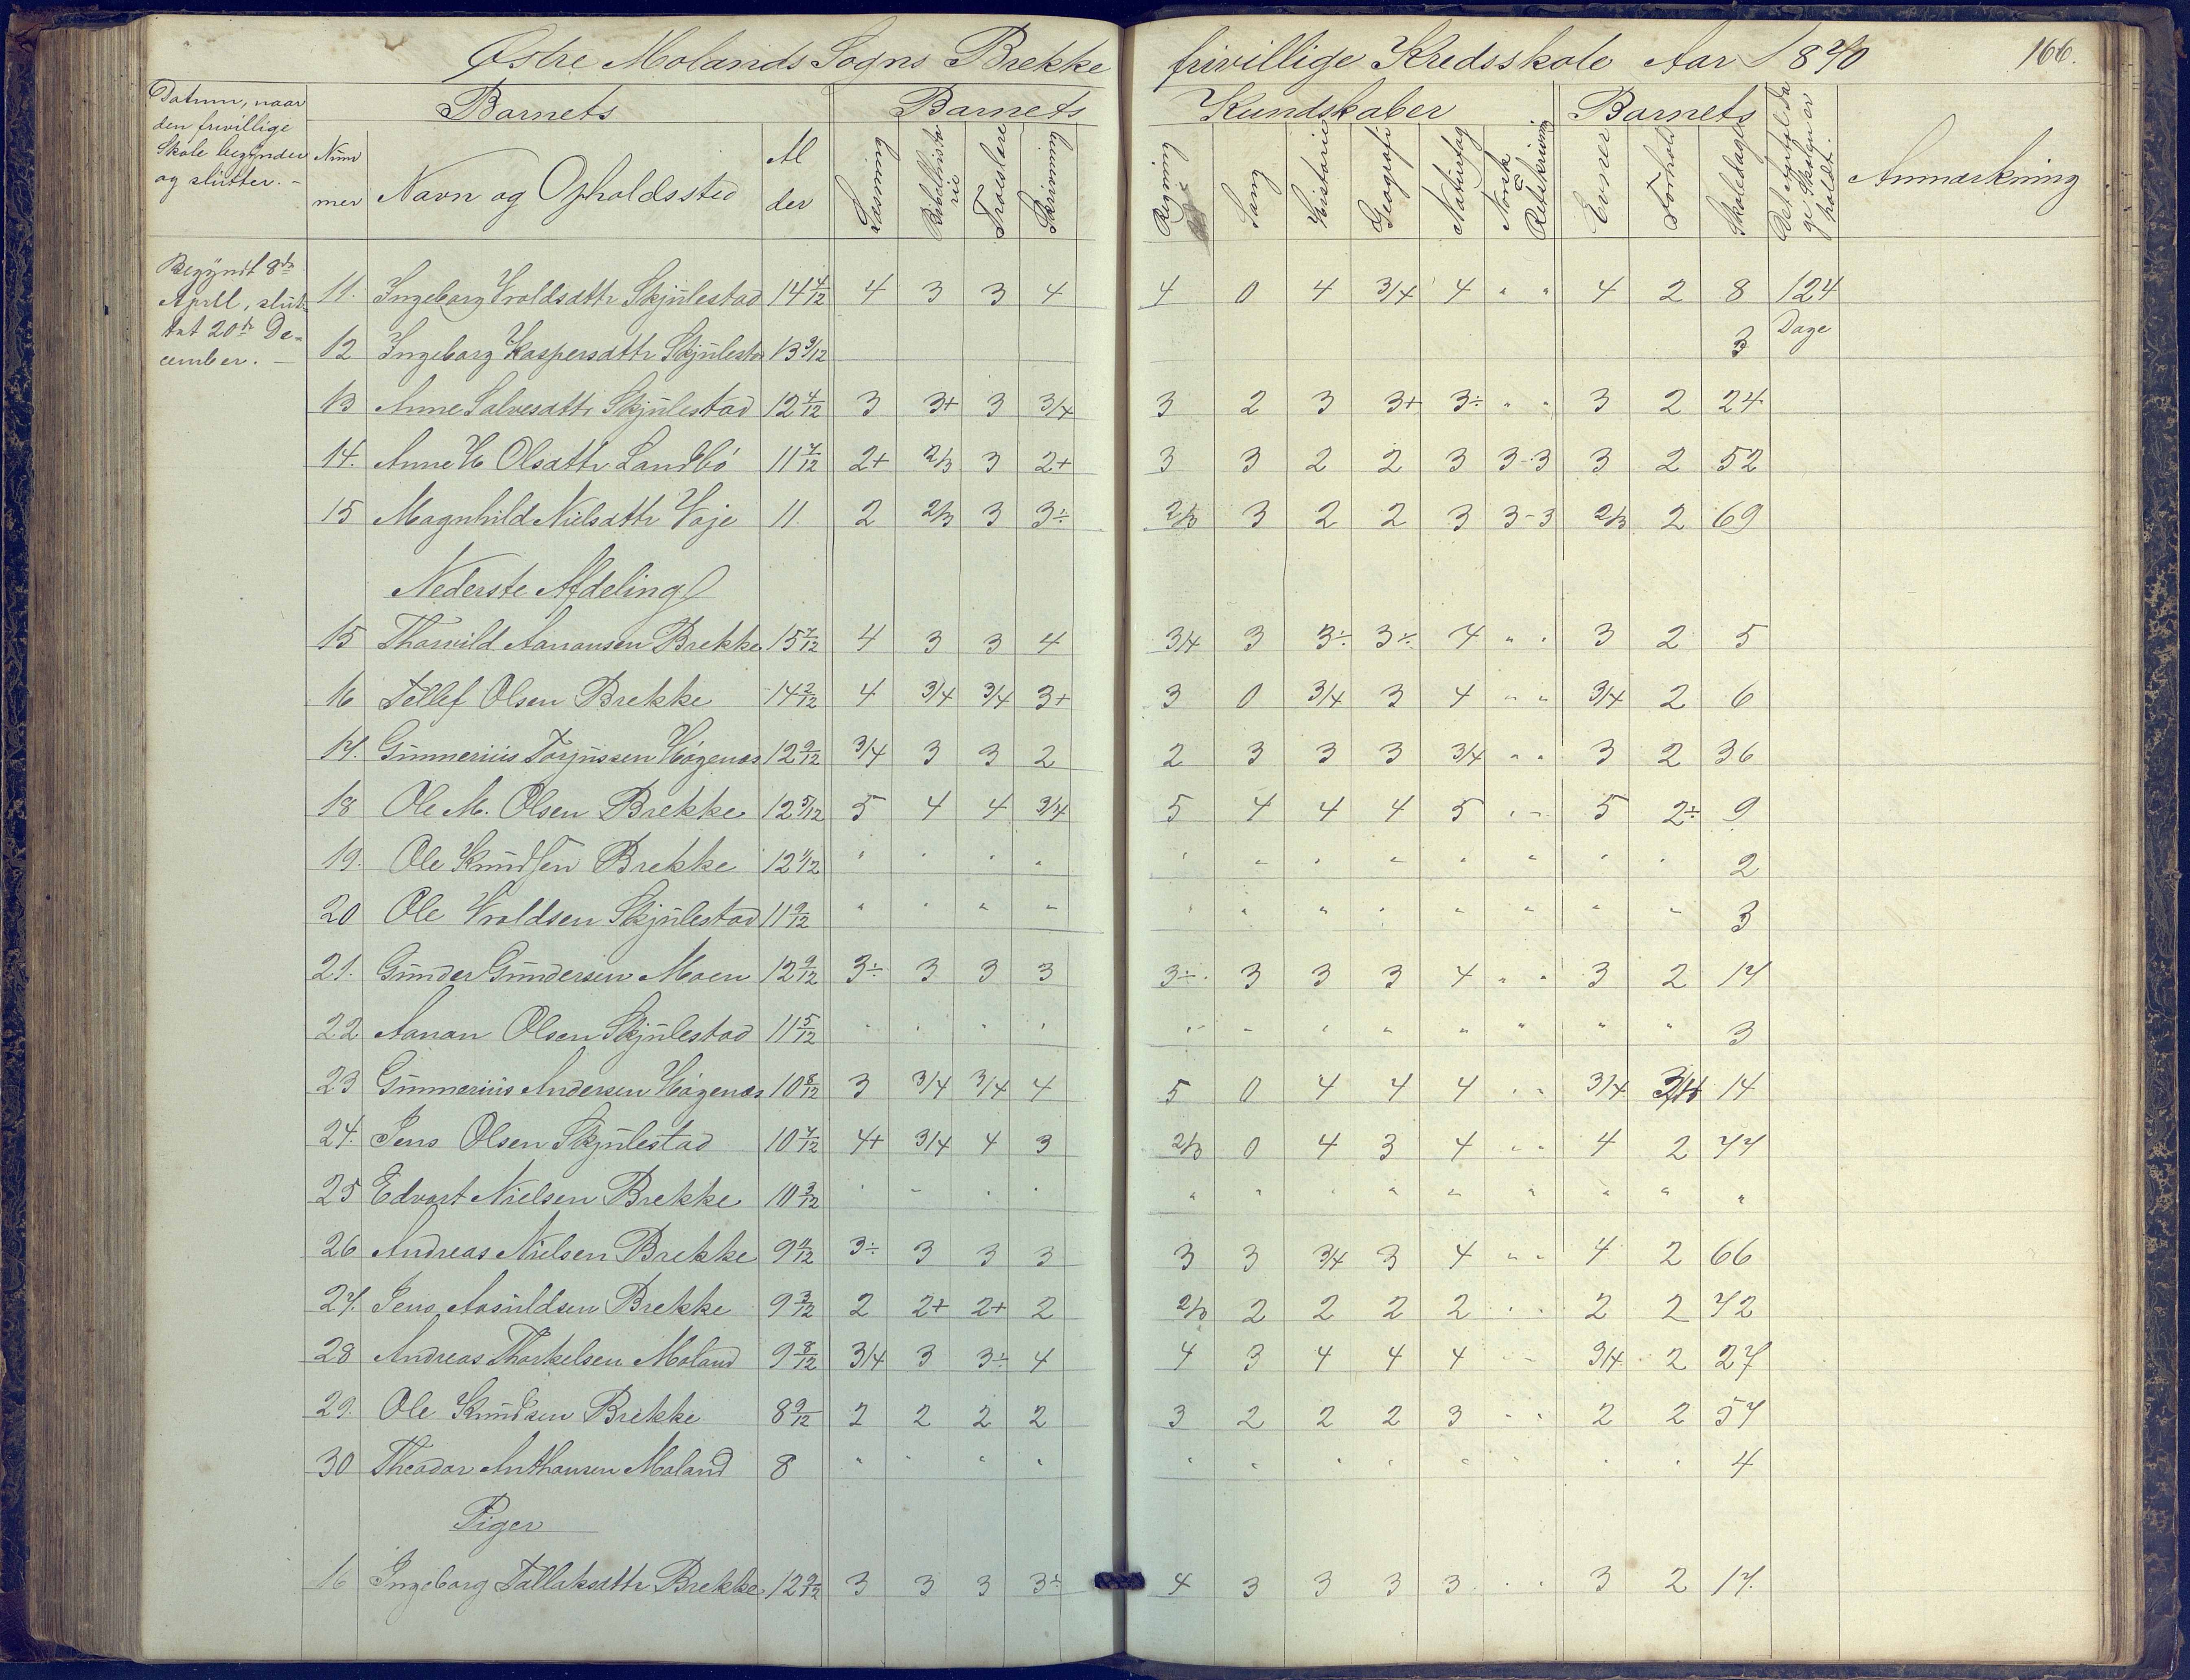 Østre Molands Sogns Brekke frivillige Kredsskole Aar 1870 166.
Datum, naar den frivillige Skole begynder og slutter. -
Barnets Barnets Kundskaber Barnets
Nummer Navn og Opholdssted Alder Læsning Bibelhistorie Troeslære Skrivning Regning Sang Historie Geografi Naturfag Norsk Retskrivning Evner Forhold Skoledage holdt. Anmærkning
Begyndt 8de April, sluttet 20de December. -
11. Ingeborg Wroldsdttr Skjulestad 14 4/12 4 3 3 4 4 0 4 3/4 4 " " 4 2 8 124 Dage
12 Ingeborg Kaspersdttr Skjulestad 13 9/12 3
13 Anne Salvesdttr Skjulestad 12 4/12 3 3+ 3 3/4 3 2 3 3+ 3÷ " " 3 2 24
14. Anne H Olsdttr Landbö 11 7/12 2+ 2/3 3 2+ 3 3 2 2 3 3-3 3 2 52
15 Magnhild Nielsdttr Voje 11. 2 2/3 3 3÷ 2/3 3 2 2 3 3-3 2/3 2 69
Nederste Afdeling
15 Thorvild Aanonsen Brekke 15 7/12 4 3 3 4 3/4 3 3÷ 3÷ 4 " " 3 2 5
16 Tellef Olsen Brekke 14 2/12 4 3/4 3/4 3+ 3 0 3/4 3 4 " " 3/4 2 6
17. Gunnerius Torjussen Högenæs 12 9/12 3/4 3 3 2 2 3 3 3 3/4 " " 3 2 36
18 Ole M. Olsen Brekke 12 5/12 5 4 4 3/4 5 4 4 4 5 " " 5 2÷ 9
19. Ole Knudsen Brekke 12 1/12 " " " " " " " " " " " " 2
20 Ole Wroldsen Skjulestad 11 9/12 " " " " " " " " " " " " 3
21. Gunder Gundersen Moen 12 9/12 3÷ 3 3 3 3÷ 3 3 3 4 " " 3 2 17
22 Aanon Olsen Skjulestad 11 5/12 " " " " " " " " " " " " 3
23 Gunnerius Andersen Högenæs 10 8/12 3 3/4 3/4 4 5 0 4 4 4 " " 3/4 14
24. Jens Olsen Skjulestad 10 7/12 4+ 3/4 4 3 2/3 0 4 3 4 " " 4 2 77
25 Edvart Nielsen Brekke 10 3/12 " " " " " " " " " " " " "
26 Andreas Nielsen Brekke 9 11/12 3÷ 3 3 3 3 3 3/4 3 4 " " 4 2 66
27. Jens Aasuldsen Brekke 9 3/12 2 2+ 2+ 2 2/3 2 2 2 2 " " 2 2 72
28 Andreas Thorkelsen Moland 9 8/12 3/4 3 3÷ 4 4 3 4 4 4 " " 3/4 2 27
29. Ole Knudsen Brekke 8 9/12 2 2 2 2 3 2 2 2 3 " " 2 2 57
30 Theodor Anthonsen Moland 8 " " " " " " " " " " " " 4
Piger
16 Ingeborg Tallaksdttr Brekke 12 9/12 3 3 3 3÷ 4 3 3 3 3 " " 3 2 17.